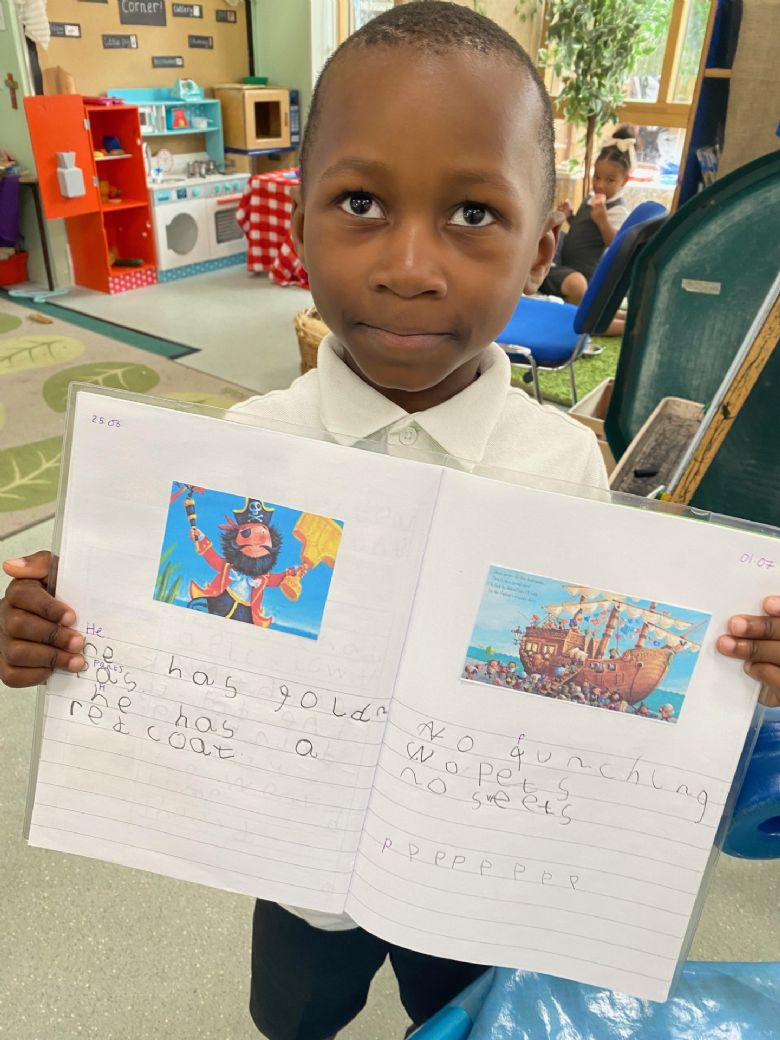 Corner!
25.06
He
he has goldn
H
he has a
red coat.
01.07
p
No qunching
No pets
no sweets
p p p p p p p p